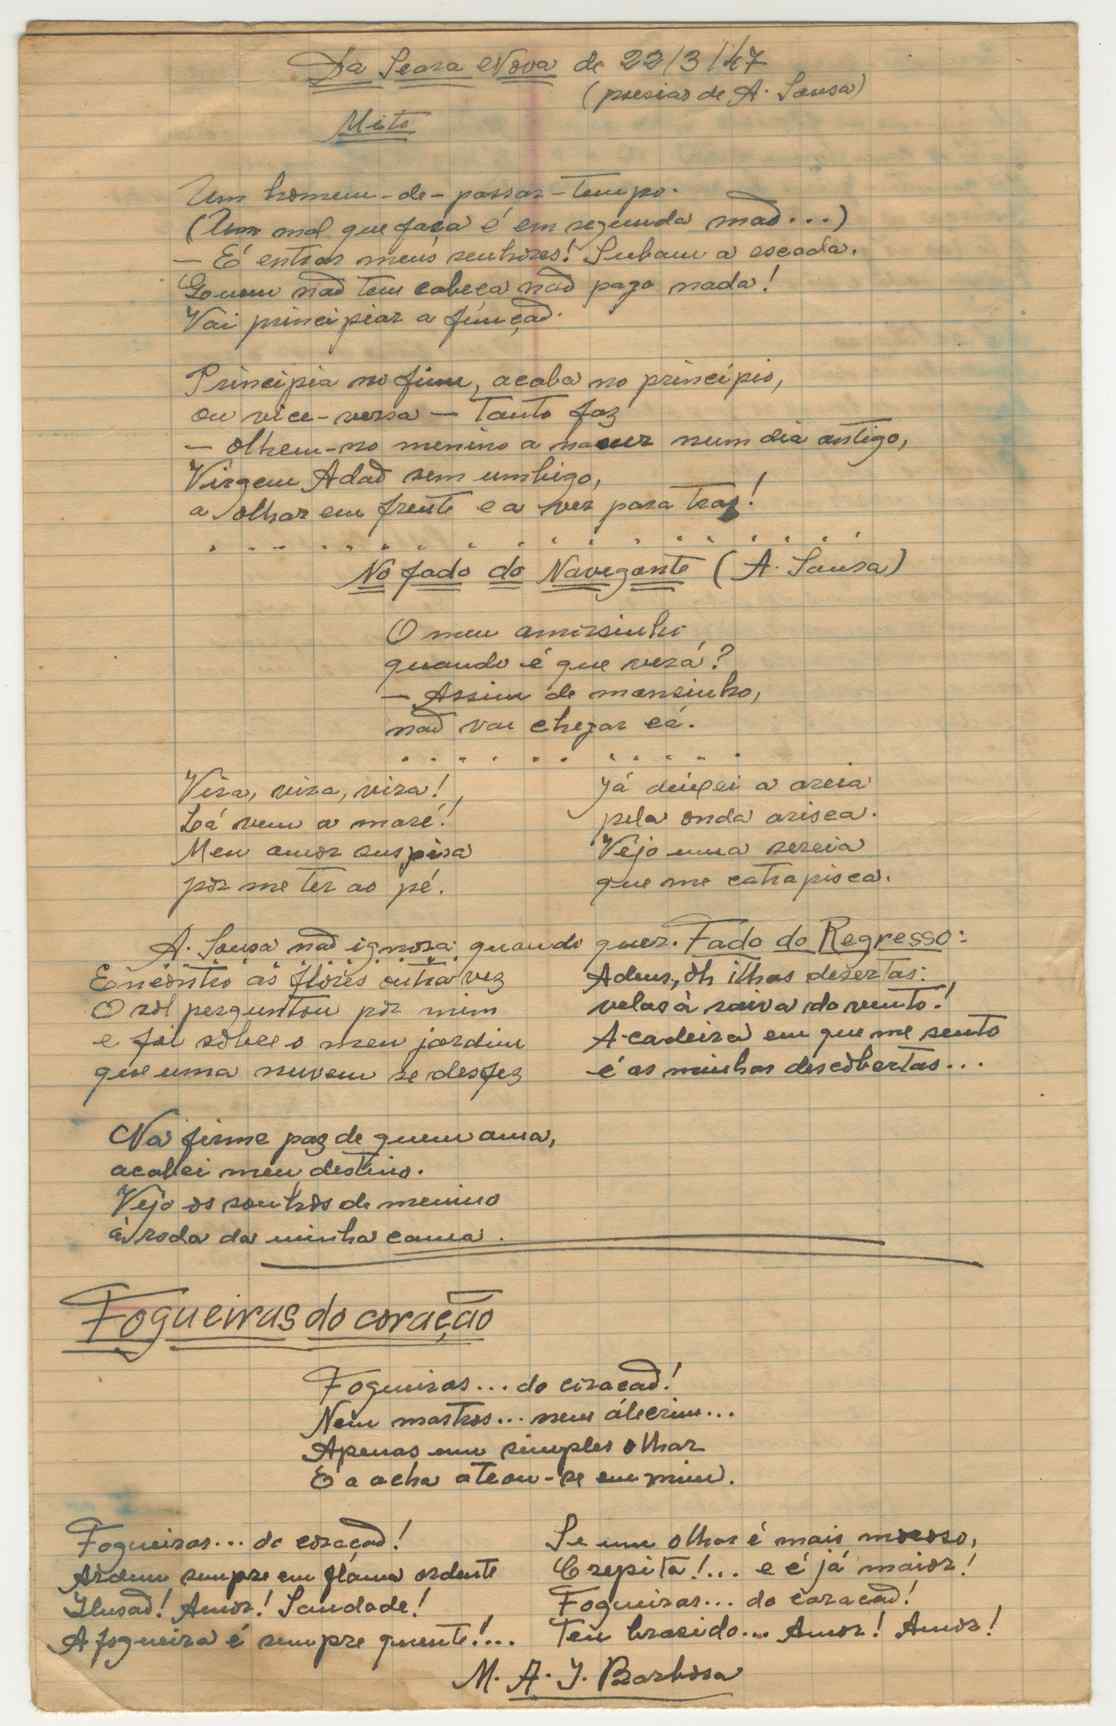 Da Seara Nova de 22/3/47
(poesias de A. Sousa)
Mito
Um homem-de-passar-tempo.
(Um mal que faça é em segunda mão...)
— É entrar meus senhores! Subam a escada.
Quem não tem cabeça não paga nada!
Vai principiar a função.
Principia no fim, acaba no princípio,
ou vice-versa — tanto faz
— olhem-no menino a nascer num dia antigo,
Virgem Adão sem umbigo,
a olhar em frente e a ver para traz!
. . . . . . . . . . . . . . . . . .
No fado do Navegante (A. Sousa)
O meu amorsinho
quando é que virá?
— Assim de mansinho,
não vai chegar cá.
. . . . . . . . . .
Vira, vira, vira!
Lá vem a maré!
Meu amor suspira
por me ter ao pé.
Já deixei a areia
pela onda arisca.
Vejo uma sereia
que me catrapisca.
A. Sousa não ignora quando quer. Fado do Regresso:
Encontro as flores outra vez
O sol perguntou por mim
e foi sobre o meu jardim
que uma nuvem se desfez
Adeus, oh ilhas desertas:
velas à raiva do vento!
A cadeira em que me sento
é as minhas descobertas...
Na firme paz de quem ama,
acabei meu destino.
Vejo os sonhos de menino
à roda da minha cama.
Fogueiras do coração
Fogueiras... do coração!
Nem mastros... nem álecrim...
Apenas um simples olhar
E a acha ateou-se em mim.
Fogueiras... do coração!
Ardem sempre em flâma ardente
Ilusão! Amor! Saudade!
A fogueira é sempre quente!...
Se um olhar é mais mocoso,
Crepita!... e é já maior!
Fogueiras... do coração!
Tem brasido... Amor! Amor!
M. A. J. Barbosa